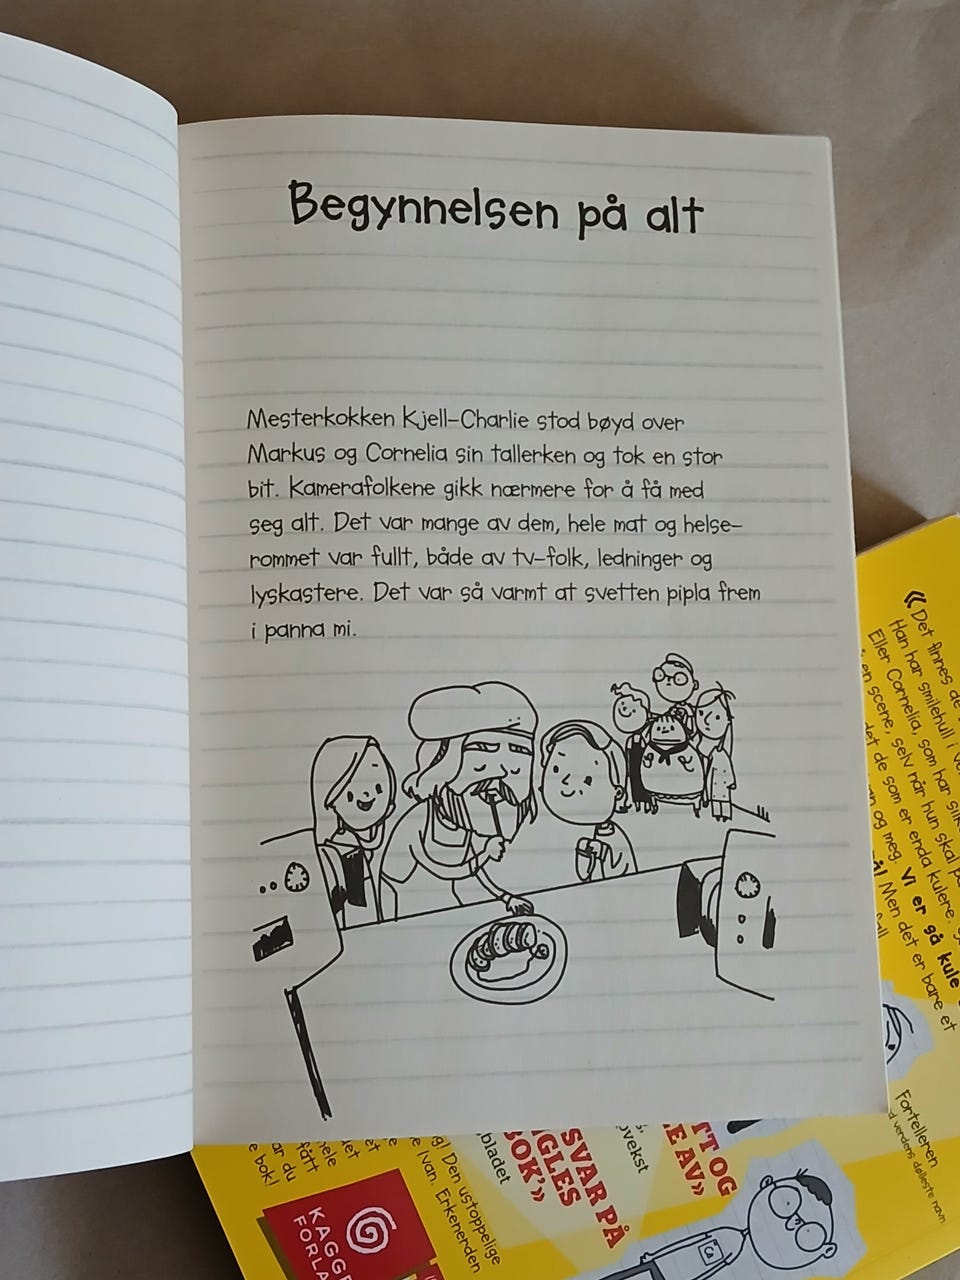 Begynnelsen på alt
Mesterkokken Kjell-Charlie stod bøyd over
Markus og Cornelia sin tallerken og tok en stor
bit. Kamerafolkene gikk nærmere for å få med
seg alt. Det var mange av dem, hele mat og helse-
rommet var fullt, både av tv-folk, ledninger og
lyskastere. Det var så varmt at svetten pipla frem
i panna mi.
«Det finnes de
Han har smilehull i
Eller Cornelia, som har
en scene, selv når hun skal
det de som er enda kulere.
og meg. Vi er så kule
Men det er bare et
Fortelleren
verdens dølleste navn
TT OG
E AV»
vekst
SVAR PÅ
AGLES
BOK'»
bladet
g! Den ustoppelige
e Ivan. Erkenerden
et
et
hele
fått
ar du
e bok!
KAGGE
FORLA